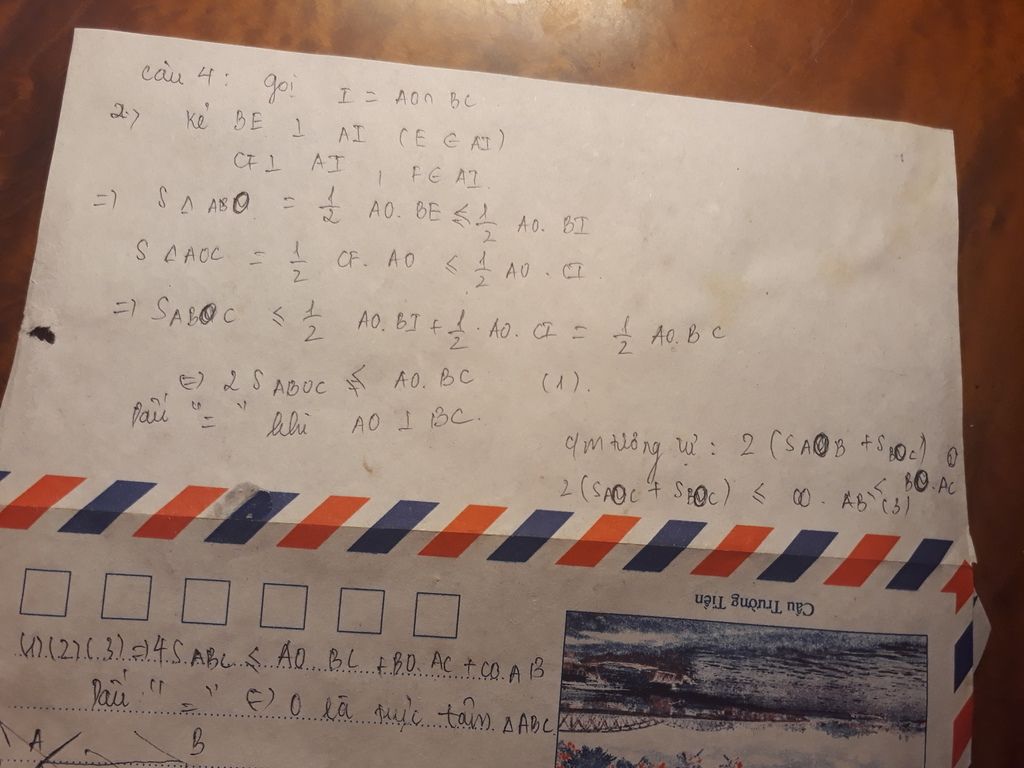 câu 4: gọi I = AO ∩ BC
2.) Kẻ BE ⊥ AI (E ∈ AI)
CF ⊥ AI , F ∈ AI.
=) S Δ ABO = 1/2 AO. BE ≤ 1/2 AO. BI
S Δ AOC = 1/2 CF. AO ≤ 1/2 AO. CI.
=) SABOC ≤ 1/2 AO.BI + 1/2. AO. CI = 1/2 AO. BC
(=) 2 SABOC ≤ AO. BC (1).
Dấu "=" khi AO ⊥ BC.
c/m tương tự: 2 (SAOB + SBOC)
≤ BO.AC
2 (SAOC + SBOC) ≤ CO. AB (3)
Cầu Trường Tiền
(1)(2)(3) =) 4SABC ≤ AO. BC + BO. AC + CO.AB
Dấu "=" (=) O là trực tâm. ΔABC
A B